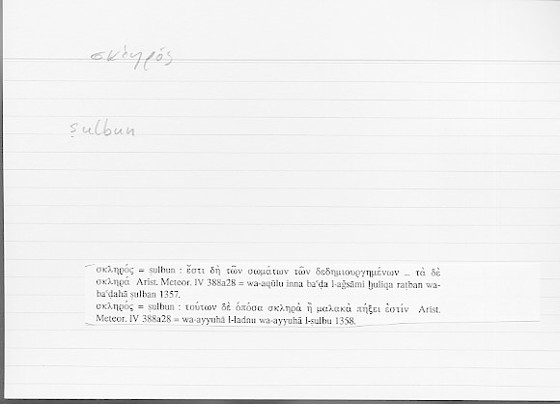 σκληρός
ṣulbun
σκληρός = ṣulbun : ἔστι δὴ τῶν σωμάτων τῶν δεδημιουργημένων ... τὰ δὲ
σκληρά Arist. Meteor. IV 388a28 = wa-aqūlu inna baʿḍa l-aǧsāmi ḫuliqa raṭban wa-
baʿḍahā ṣulban 1357.
σκληρός = ṣulbun : τούτων δὲ ὁπόσα σκληρὰ ἢ μαλακὰ πήξει ἐστίν Arist.
Meteor. IV 388a28 = wa-ayyuhā l-ladnu wa-ayyuhā l-ṣulbu 1358.